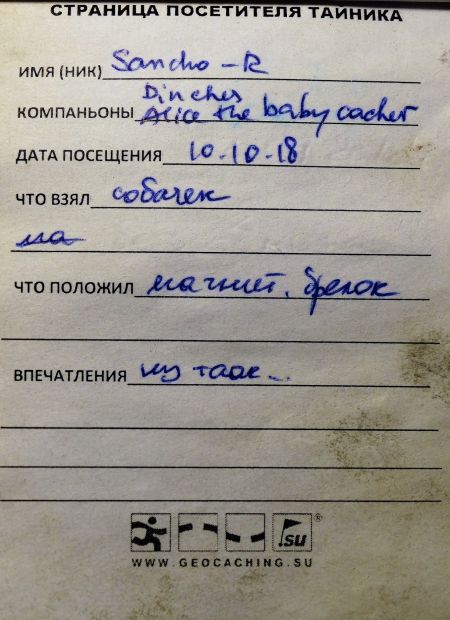 СТРАНИЦА ПОСЕТИТЕЛЯ ТАЙНИКА
ИМЯ (НИК) Sancho-R
Dinches
КОМПАНЬОНЫ Alice the baby cacher
ДАТА ПОСЕЩЕНИЯ 10-10-18
ЧТО ВЗЯЛ собачек
ма
ЧТО ПОЛОЖИЛ магнит, брелок
ВПЕЧАТЛЕНИЯ ну таак...
.su ®
WWW.GEOCACHING.SU